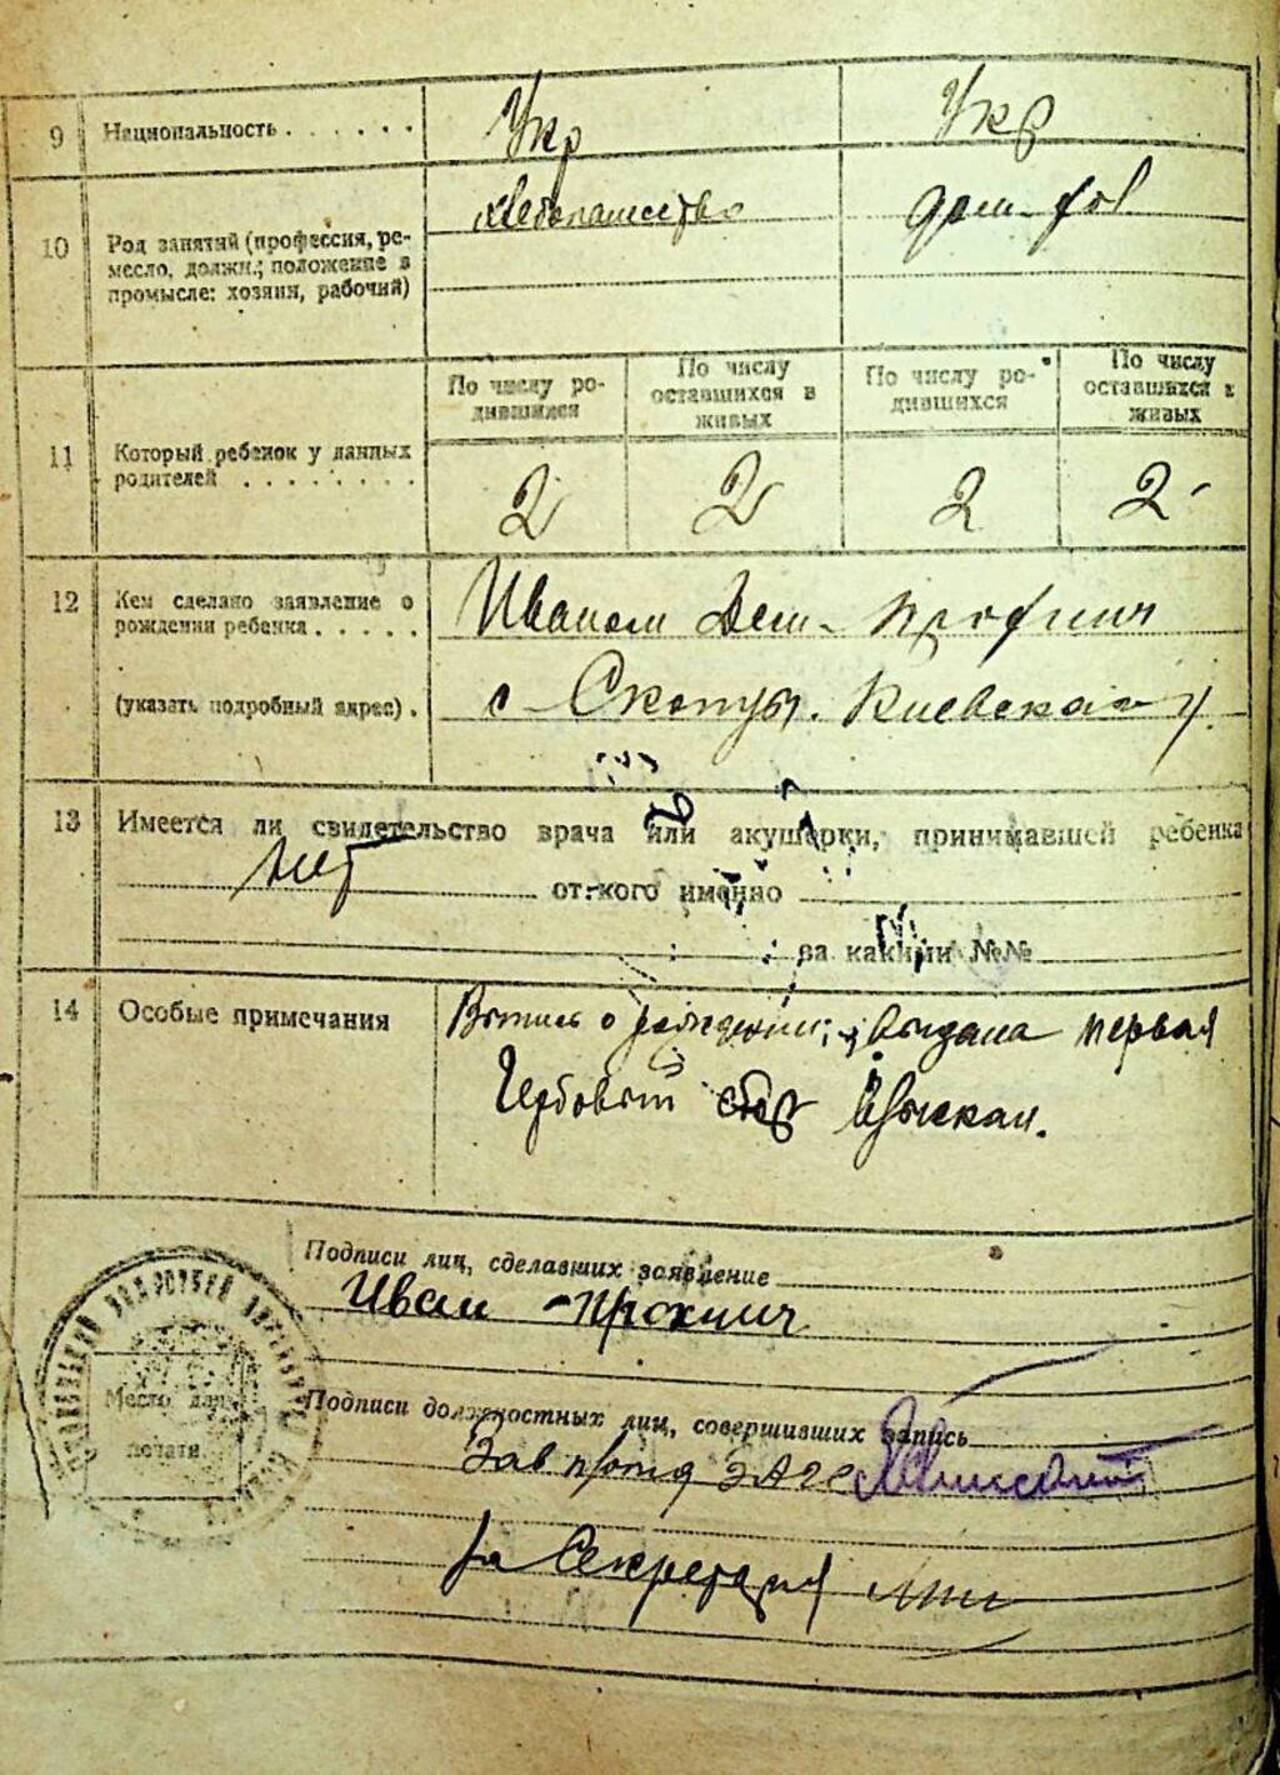 9 Национальность . . . . . . Укр Укр
хлебопашество дом. раб
10 Род занятий (профессия, ре-
месло, должн.; положение в
промысле: хозяин, рабочий)
По числу ро-
дившихся
По числу
оставшихся в
живых
По числу ро-
дившихся
По числу
оставшихся в
живых
11 Который ребенок у данных
родителей . . . . . . . . 2 2 2 2
12 Кем сделано заявление о
рождении ребенка . . . . . Иваном Дем.
(указать подробный адрес) . с
13 Имеется ли свидетельство врача или акушерки, принимавшей ребенка
нет от кого именно
за какими №№
14 Особые примечания
о рождении выдана первая
Гербовый сбор взыскан.
Подписи лиц, сделавших заявление
Иван Прохнич
Место для
печати
Подписи должностных лиц, совершивших запись
Зав ЗАГС
за Секретаря